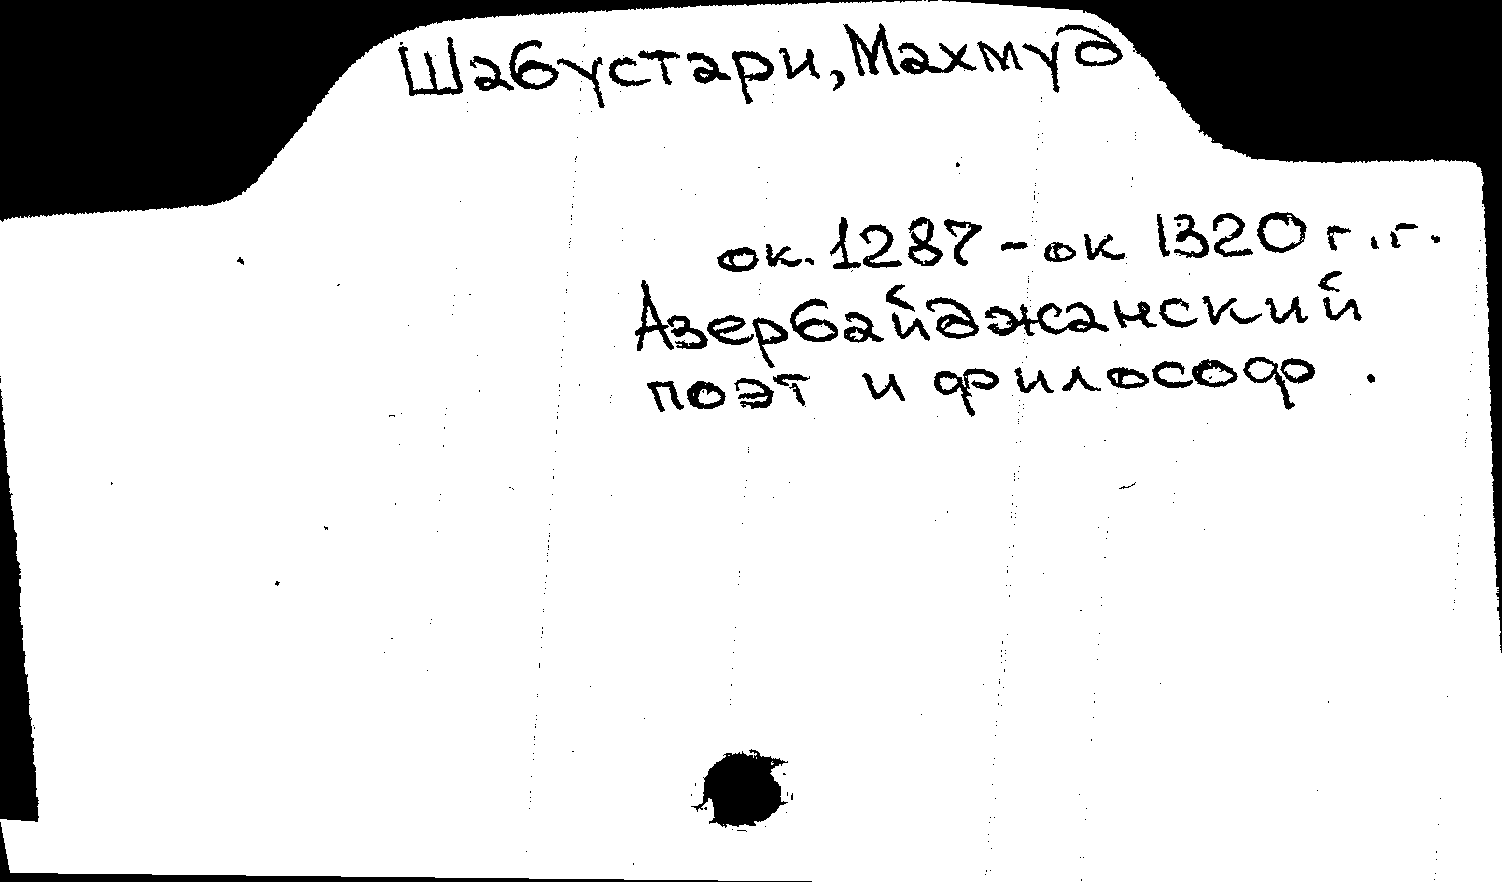 Шабустари, Махмуд
ок. 1287 - ок 1320 г.г.
Азербайджанский
поэт и философ.